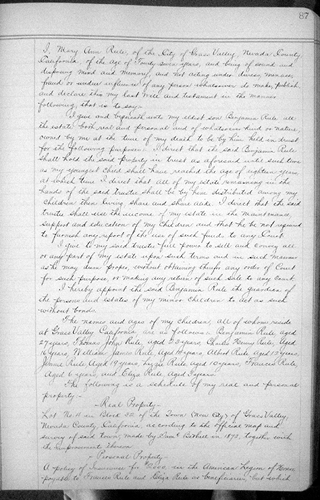 87
I, Mary Ann Rule, of the City of Grass Valley, Nevada County,
California, of the age of Forty seven years, and being of sound and
disposing mind and memory, and not acting under duress, menace,
fraud or undue influence of any person whatsoever do make, publish,
and declare this my last will and testament in the manner
following, that is to say:
I give and bequeath unto my eldest son Benjamin Rule all
the estate both real and personal and of whatsoever kind or nature
owned by me at the time of my death to be by him held in trust
for the following purposes. I direct that the said Benjamin Rule
shall hold the said property in trust as aforesaid until such time
as my youngest child shall have reached the age of eighteen years
at which time I direct that all of my estate remaining in the
hands of the said trustee shall be by him distributed among my
children then living share and share alike. I direct that the said
trustee shall use the income of my estate in the maintenance,
support and education of my children and that he be not required
to furnish any report of the use of such funds to any Court.
I give to my said trustee full power to sell and convey all
or any part of my estate upon such terms and in such manner
as he may deem proper without obtaining therefor any order of Court
for such purpose or making any return of such sale to any Court.
I hereby appoint the said Benjamin Rule the guardian of
the persons and estates of my minor children to act as such
without bonds.
The names and ages of my children, all of whom reside
at Grass Valley California are as follows: Benjamin Rule, aged
27 years, Thomas John Rule, aged 20 years, Charles Henry Rule, aged
16 years, William James Rule, aged 14 years, Albert Rule, aged 12 years,
Rule, aged years, Lizzie Rule, aged 10 years, Frances Rule,
aged 6 years, and Eliza Rule, aged years.
The following is a schedule of my real and personal
property:
Real Property
Lot No. 11 in Block 22 of the Town (now City) of Grass Valley,
Nevada County, California, according to the official map and
survey of said town, made by Sam'l Bethell in 1872, together with
the improvements thereon.
Personal Property
A policy of Insurance for in the American Legion of Honor
payable to Frances Rule and Eliza Rule as beneficiaries, but which